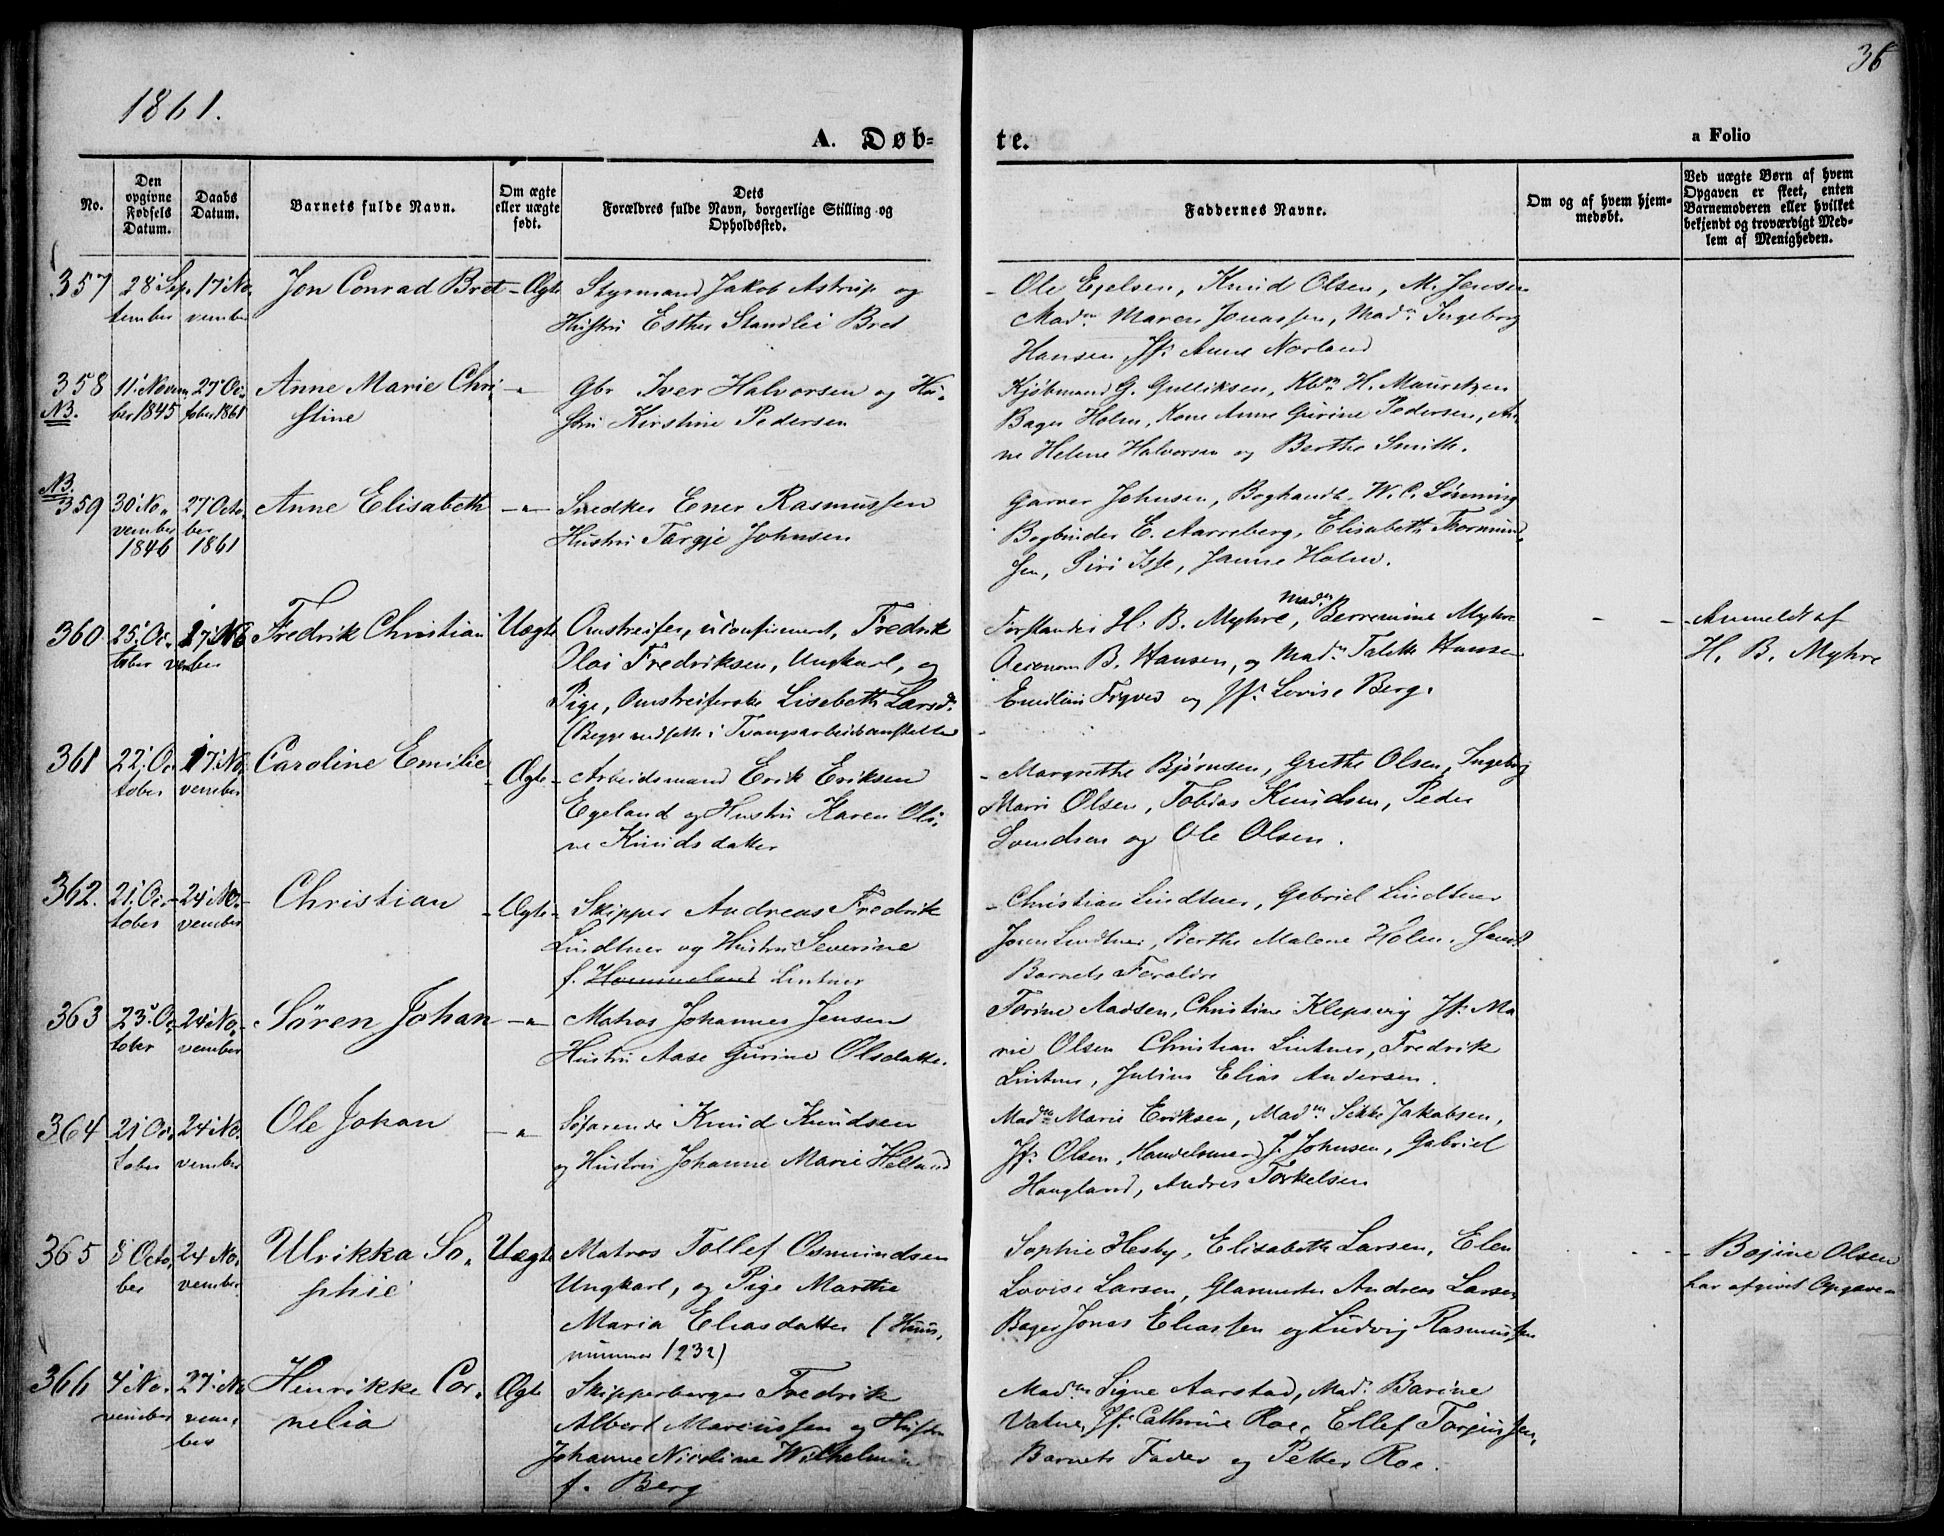 1861.
36
A. Døb-
te.
a Folio
No.
Den opgivne Fødsels Datum.
Daabs Datum.
Barnets fulde Navn.
Om ægte eller uægte født.
Dets Forældres fulde Navn, borgerlige Stilling og Opholdsted.
Faddernes Navne.
Om og af hvem hjemmedøbt.
Ved uægte Børn af hvem Opgaven er skeet, enten Barnemoderen eller hvilket bekjendt og troværdigt Medlem af Menigheden.
357 28' Sep- 17' No- Jon Conrad Bret - Ægte Styrmand Jakob Astrup og
tember vember Hustru Esther Standlei Bret
Ole Egelsen, Knud Olsen, M. Jensen
Mad.m Maren Jonassen, Mad.m Ingeborg
Hansen, Jf: Anne Norland
358 11' Novem 27' Oc- Anne Marie Chri- -"-  Gbr Iver Halvorsen og Hu-
NB. ber 1845 tober 1861 stine stru Kirstine Pedersen
Kjøbmand G. Gulliksen, Kbm. H. Mauritzen
Bager Holm, Kone Anne Gurine Pedersen, An-
ne Helene Halvorsen og Berthe Smith.
NB.
359 30' No- 27' Octo- Anne Elisabeth -"- Snedker Ener Rasmussen
vember ber Hustru Targje Johnsen
1846 1861
Garver Johnsen, Boghandl. W. C.
Bogbinder E. Aarreberg, Elisabeth Thormund-
sen, Siri Janne Holm.
360 25' Oc- 17' No Fredrik Christian Uægte Omstreifer, uconfirmeret, Fredrik
tober vember Olai Fredriksen, Ungkarl, og
Pige, Omstreiferske Lisebeth Larsd.
(Begge indsatte i Tvangsarbeidsanstalten
Forstander H. B. Myhre, Mad.m Berremine Myhre
Oeconom B. Hansen, og Mad.m Talette Hansen
Tygved og Jf: Lovise Berg.
- - Anmeldt af
H. B. Myhre
361 22' Oc- 17' No- Caroline Emilie - Ægte - Arbeidsmand Erik Eriksen
tober vember Egeland og Hustru Karen Oli-
ne Knudsdatter
- Margrethe Bjørnsen, Grethe Olsen, Ingeborg
Marie Olsen, Tobias Knudsen, Peder
Svendsen og Ole Olsen.
362. 21' Oc- 24' No- Christian - Ægte - Skipper Andreas Fredrik
tober vember Lindtner og Hustru Severine
f. Hommeland Lintner
- Christian Lindtner, Gabriel Lindtner
Lindtner, Berthe Malene Holm. samt
Barnets Forældre
363 23' Oc- 24' No- Søren Johan -"- Matros Johannes Jensen
tober vember Hustru Aase Gurine Olsdatter.
Torine Aadsen, Christine Klepsvig Jf: Ma
rie Olsen Christian Lintner, Fredrik
Lintner, Julius Elias Andersen.
364 21' Oc- 24' No- Ole Johan -"- Søfarende Knud Knudsen
tober vember og Hustru Johanne Marie Helland
Mad.m Marie Eriksen, Mad.m Sikke Jakobsen,
Jf: Olsen, Handelsmand J. Johnsen, Gabriel
Haugland, Andres Torkelsen
365 8' Octo- 24' No- Ulrikka So- Uægte Matros Tollef Osmundsen
ber vember phie Ungkarl, og Pige Marthe
Maria Eliasdatter (Huus-
nummer 1232)
Sophie Hesby, Elisabeth Larsen, Elen
Lovise Larsen, Glarmester Andreas Larsen
Bager Jonas Eliassen og Ludvig Rasmussen
- - - Bojine Olsen
har afgivet Opgaven
366 4' No- 27' No Henrikke Cor- Ægte Skipperborger Fredrik
vember vem- nelia Albert Marcussen og Hustru
ber Johanne Nicoline Wilhelmine
f. Berg
Mad.m Signe Aarstad, Mad. Barine
Vatne, Jf: Cathrine Roe, Ellef Torjussen,
Barnets Fader og Petter Roe.